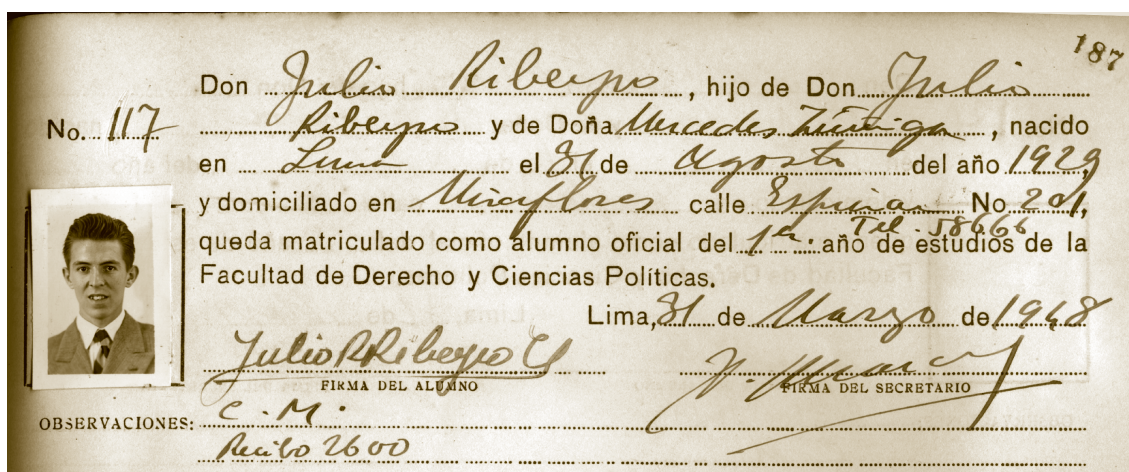 187
Don Julio Ribeyro, hijo de Don Julio
No. 117 Ribeyro y de Doña Mercedes Zúñiga, nacido
en Lima el 31 de Agosto del año 1929
y domiciliado en Miraflores calle Espinar No. 201,
Tel. 58666
queda matriculado como alumno oficial del 1er. año de estudios de la
Facultad de Derecho y Ciencias Políticas.
Lima, 31 de Marzo de 1948
Julio R Ribeyro
FIRMA DEL ALUMNO FIRMA DEL SECRETARIO
OBSERVACIONES: C. M.
Recibo 2600